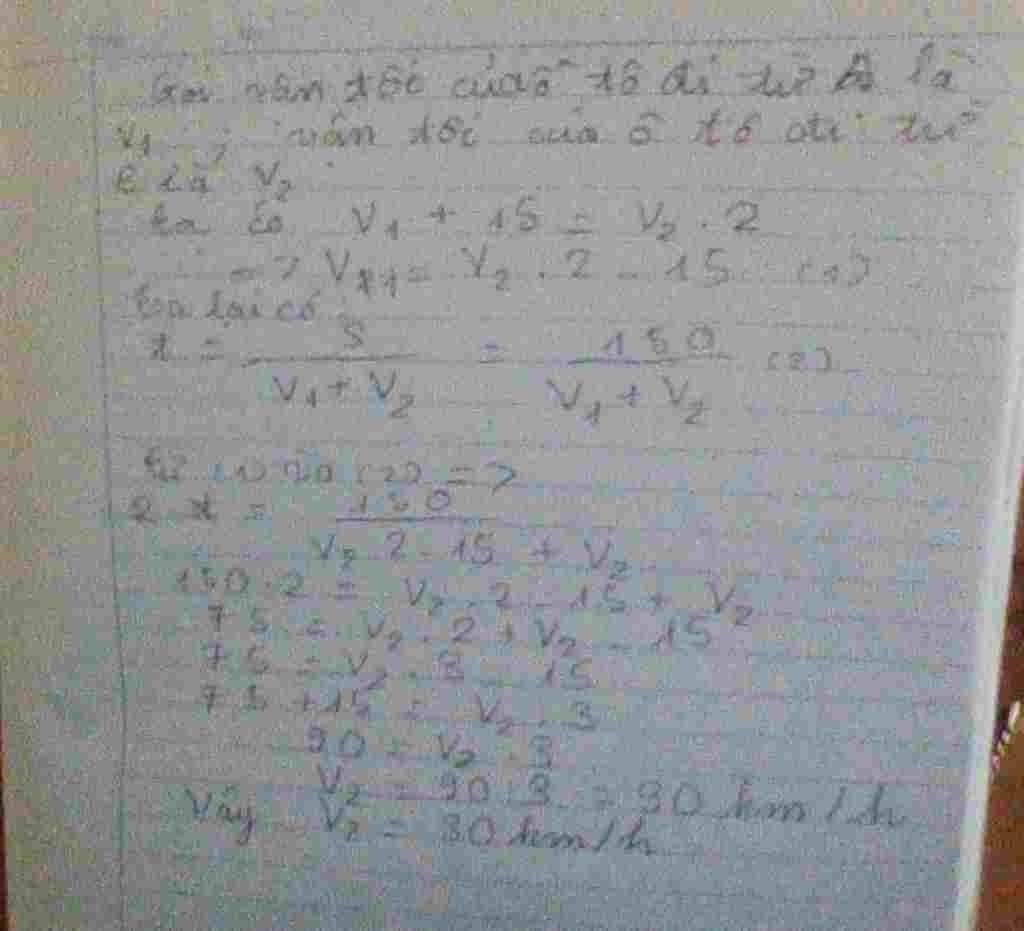 Gọi vân tôc của ô tô đi từ A là
V₁ ; vân tôc của ô tô đi từ
là V₂
ta có V₁ + 15 = V₂ . 2
=> V₁ = V₂ . 2 - 15 (1)
ta lại có
t = S / (V₁ + V₂) = 150 / (V₁ + V₂) (2)
từ (1) và (2) =>
2 = 150 / (V₂ . 2 - 15 + V₂)
150 : 2 = V₂ . 2 - 15 + V₂
75 = V₂ . 2 + V₂ - 15
75 = V₂ . 3 - 15
75 + 15 = V₂ . 3
90 = V₂ . 3
V₂ = 90 : 3 = 30 km/h
Vậy V₂ = 30 km/h